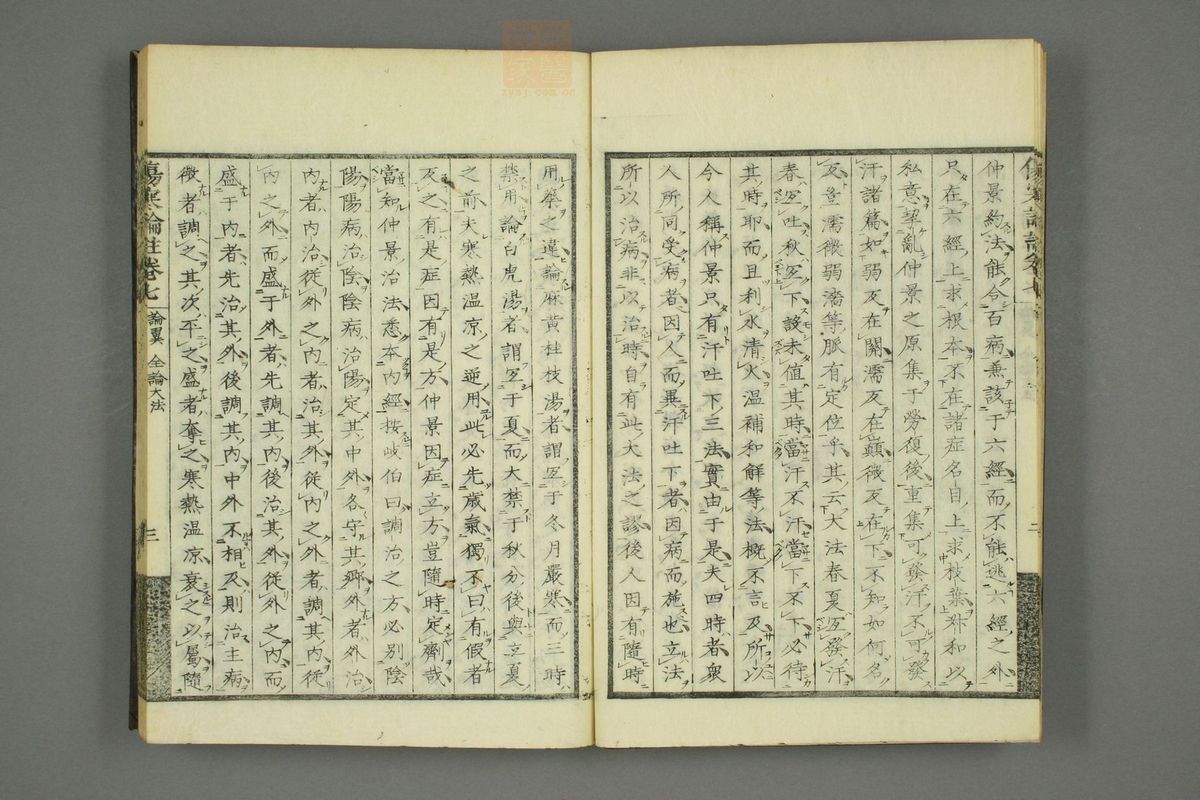 仲景約法能合百病兼該于六經而不能逃六經之外
只在六經上求根本不在諸症名目上求枝葉叔和以
私意挈亂仲景之原集于勞復後重集可發汗不可發
汗諸篇如弱反在關濡反在巔微反在下不知如何名
反豈濡微弱濇等脈有定位乎其云大法春夏宜發汗
春宜吐秋宜下設未值其時當汗不汗當下不下必待
其時耶而且利水清火温補和解等法概不言及所以
今人稱仲景只有汗吐下三法實由于是夫四時者衆
人所同受病者因人而異汗吐下者因病而施也立法
所以治病非以治時自有此大法之謬後人因有隨時
用藥之違論麻黄桂枝湯者謂宜于冬月嚴寒而三時
禁用論白虎湯者謂宜于夏而大禁于秋分後與立夏
之前夫寒熱温凉之逆用此必先歲氣獨不曰有假者
反之有是症因有是方仲景因症立方豈隨時定劑哉
當知仲景治法悉本内經按岐伯曰調治之方必別陰
陽陽病治陰陰病治陽定其中外各守其鄉外者外治
内者内治從外之内者治其外從内之外者調其内從
内之外而盛于外者先調其内後治其外從外之内而
盛于内者先治其外後調其内中外不相及則治主病
微者調之其次平之盛者奪之寒熱温凉衰之以屬隨
傷寒論註卷七 論翼 全論大法 三